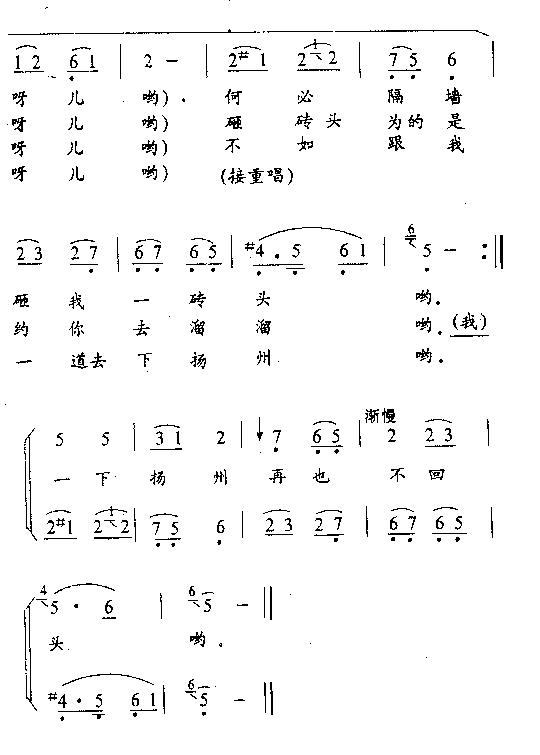 1 2 6 1 | 2 – | 2 #1 2 1 2 | 7 5 6 |
呀 儿 哟). 何 必 隔 墙
呀 儿 哟) 砸 砖头 为的是
呀 儿 哟) 不 如 跟 我
呀 儿 哟) (接重唱)
2 3 2 7 | 6 7 6 5 | #4 . 5 6 1 | 6 5 – :||
砸 我 一 砖 头 哟.
约 你 去 溜 溜 哟. (我)
一 道去 下 扬 州 哟.
渐慢
5 5 | 3 1 2 | 7 6 5 | 2 2 3 |
一 下 扬 州 再 也 不 回
2 #1 2 1 2 | 7 5 6 | 2 3 2 7 | 6 7 6 5 |
4 5 · 6 | 6 5 – ||
头 哟.
#4 · 5 6 1 | 6 5 – ||